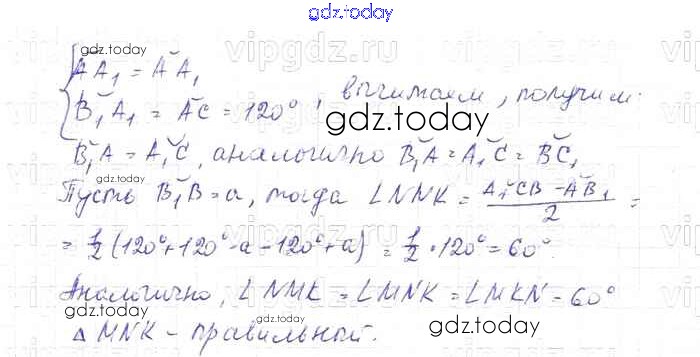 gdz.today
vipgdz.ru
gdz.today
{ ĂA₁ = ĂA₁
B̆₁A₁ = ĂC = 120°, вычитаем, получим:
gdz.today
B̆₁A = Ă₁C, аналогично B̆₁A = Ă₁C = B̆C₁
gdz.today
Пусть B̆₁B = a, тогда ∠NNK = (A₁CB - AB₁)/2 =
= 1/2 (120° + 120° - a - 120° + a) = 1/2 · 120° = 60°.
vipgdz.ru
Аналогично, ∠NMK = ∠MNK = ∠MKN = 60°
gdz.today
gdz.today
△ MNK - правильной.